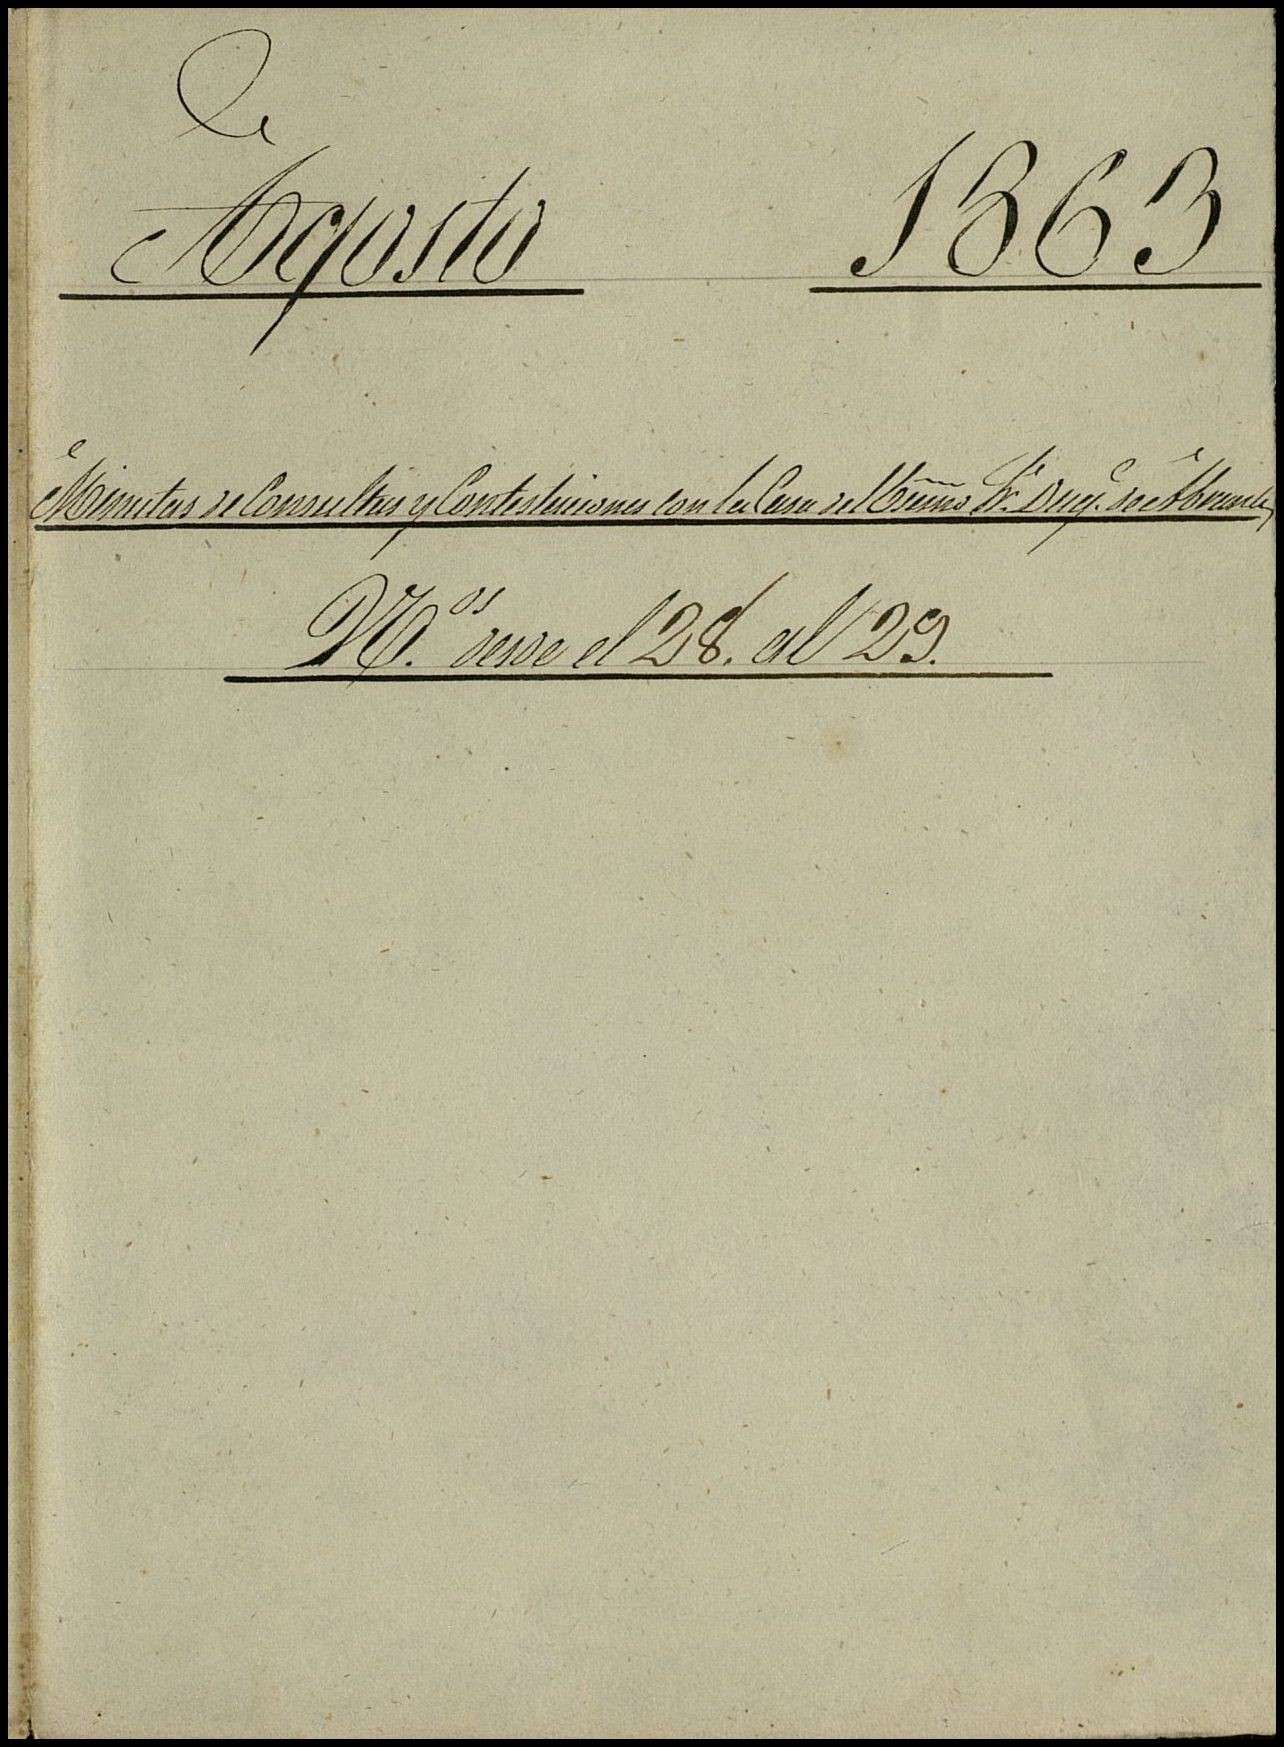 Agosto 1863
Minutas de Consultas y Contestaciones con la Casa del Exmo Sr. Duq.e de Abrantes
N.os desde el 28. al 29.